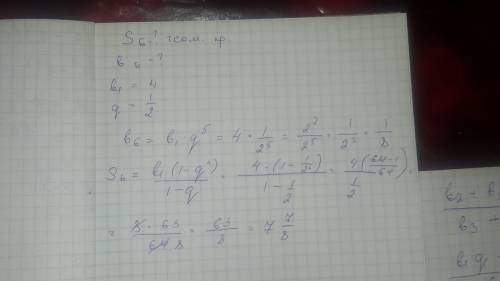 S₆-? геом. пр.
b₆-?
b₁ = 4
q = 1/2
b₆ = b₁ q⁵ = 4 · 1/2⁵ = 2²/2⁵ = 1/2³ = 1/8
S₆ = b₁(1-q⁶)/(1-q) = 4·(1-1/2⁶)/(1-1/2) = 4(64-1/64)/(1/2) =
= 8·63/64 8 = 63/8 = 7 7/8
b₂ - b
b₃ +
b₁q -